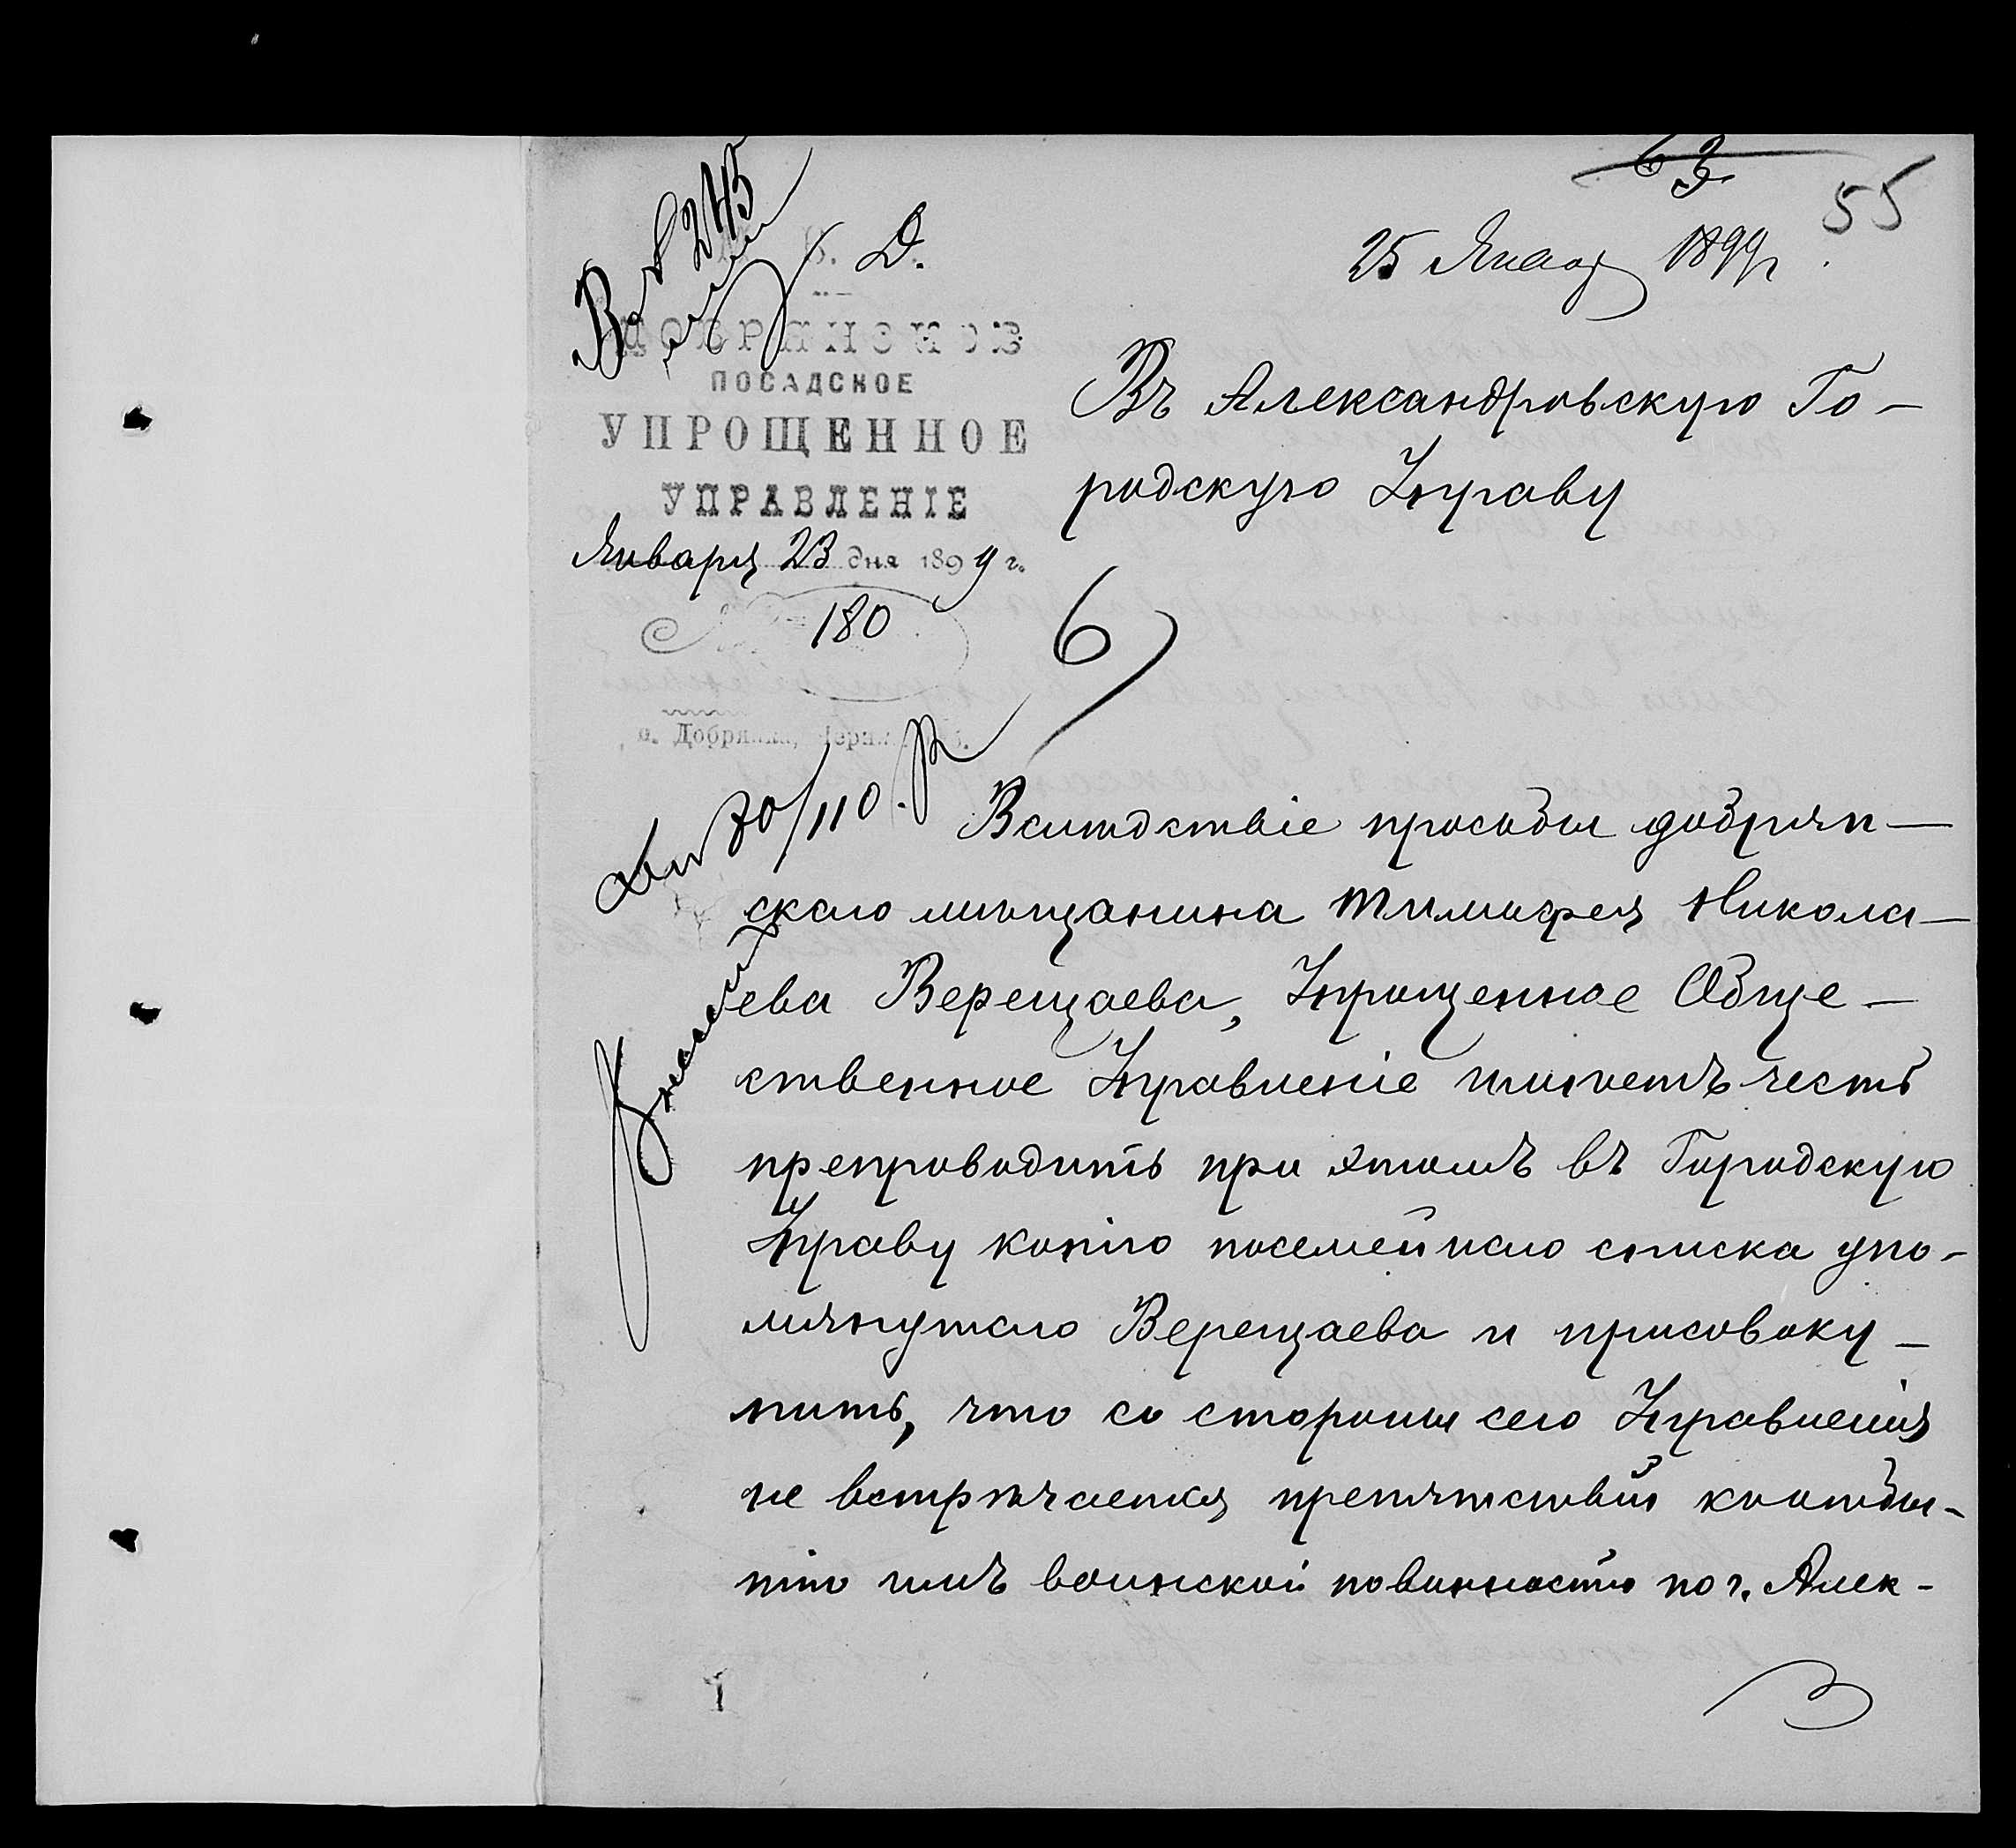 63
55
25 Январ 1899 г.
В. Д.
ДОБРЯНСКОЕ
ПОСАДСКОЕ
УПРОЩЕННОЕ
УПРАВЛЕНІЕ
Января 23 дня 1899 г.
№ 180
п. Добрянка, Черн.
Въ Александровскую Го-
родскую Управу
6)
70/110.
Вслѣдствіе просьбы добрян-
скаго мѣщанина Тимофея Никола-
ева Верещаева, Упрощенное Обще-
ственное Управленіе имѣетъ честь
препроводить при этомъ въ Городскую
Управу копію посемейнаго списка упо-
мянутаго Верещаева и присовоку-
пить, что со стороны сего Управленія
не встрѣчается препятствій къ отбы-
тію имъ воинской повинности по г. Алек-